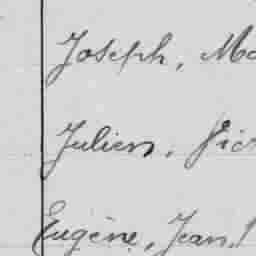 Joseph, Ma
Julien, Vic
Eugène, Jean,